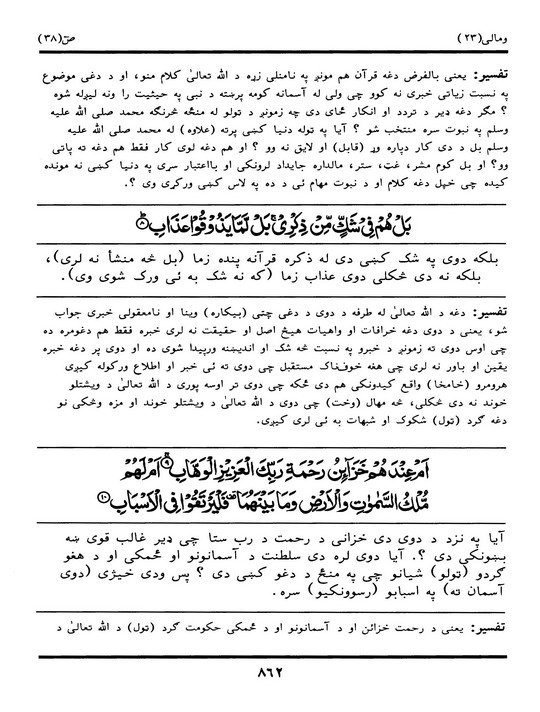 ومالی(۲۳) صٓ(۳۸)
تفسیر: یعنی بالفرض دغه قرآن هم مونږ په نامنلی زړه د الله تعالیٰ کلام منو، او د دغی موضوع
په نسبت زیاتی خبری نه کوو چی ولی له آسمانه کومه پرښته د نبی په حیثیت را ونه لیږله شوه
؟ مګر دغه ډیر د تردد او انکار ځای دی چه زمونږ د ټولو له منځه څرنګه محمد صلی الله علیه
وسلم په نبوت سره منتخب شو ؟ آیا په ټوله دنیا کښی پرته (علاوه) له محمد صلی الله علیه
وسلم بل د دی کار دپاره وړ (قابل) او لایق نه وو ؟ او هم دغه لوی کار فقط هم دغه ته پاتی
وو؟ او بل کوم مشر، غټ، ستر، مالداره جایداد لرونکی او بااعتبار سړی په دنیا کښی نه مونده
کیده چی خپل دغه کلام او د نبوت مهام ئی د ده په لاس کښی ورکړی وی ؟.
بَلْ هُمْ فِیْ شَكٍّ مِّنْ ذِكْرِیْ ۚ بَلْ لَّمَّا یَذُوْقُوْا عَذَابِ ۝۸
بلکه دوی په شک کښی دی له ذکره قرآنه پنده زما (بل څه منشأ نه لری)،
بلکه نه دی څکلی دوی عذاب زما (که نه شک به ئی ورک شوی وی).
تفسیر: دغه د الله تعالیٰ له طرفه د دوی د دغی چتی (بیکاره) وینا او نامعقولی خبری جواب
شو، یعنی د دوی دغه خرافات او واهیات هیڅ اصل او حقیقت نه لری خبره فقط هم دغومره ده
چی اوس دوی ته زمونږ د خبرو په نسبت څه شک او اندیښنه ورپیدا شوی ده او دوی پر دغه خبره
یقین او باور نه لری چی هغه خوفناک مستقبل چی دوی ته ئی خبر او اطلاع ورکوله کیږی
هرومرو (خامخا) واقع کیدونکی هم دی ځکه چی دوی تر اوسه پوری د الله تعالیٰ د ویشتلو
خوند نه دی څکلی، څه مهال (وخت) چی دوی د الله تعالیٰ د ویشتلو خوند او مزه وڅکی نو
دغه ګرد (ټول) شکوک او شبهات به ئی لری کیږی.
اَمْ عِنْدَهُمْ خَزَآىِٕنُ رَحْمَةِ رَبِّكَ الْعَزِیْزِ الْوَهَّابِ ۝۹ اَمْ لَهُمْ
مُّلْكُ السَّمٰوٰتِ وَالْاَرْضِ وَمَا بَیْنَهُمَا ۫ فَلْیَرْتَقُوْا فِی الْاَسْبَابِ ۝۱۰
آیا په نزد د دوی دی خزانی د رحمت د رب ستا چی ډیر غالب قوی ښه
بښونکی دی ؟. آیا دوی لره دی سلطنت د آسمانونو او ځمکی او د هغو
ګردو (ټولو) شیانو چی په منځ د دغو کښی دی ؟ پس ودی خیژی (دوی
آسمان ته) په اسبابو (رسوونکیو) سره.
تفسیر: یعنی د رحمت خزائن او د آسمانونو او د ځمکی حکومت ګرد (ټول) د الله تعالیٰ د
۸٦۲